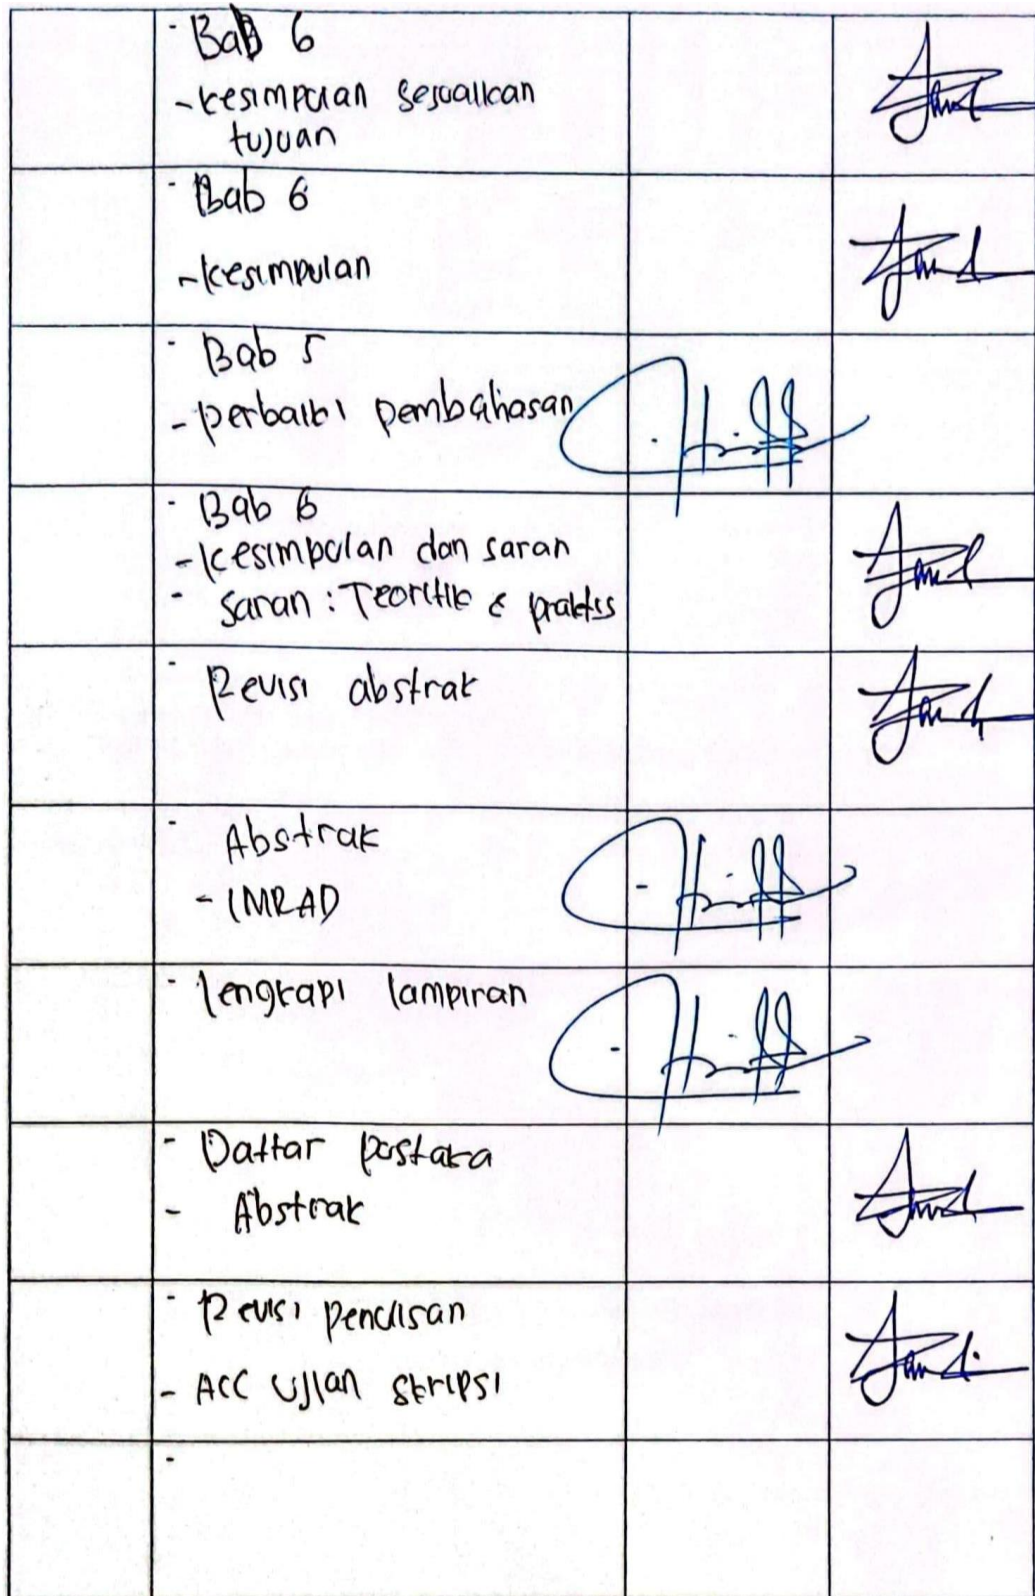 - Bab 6
- kesimpulan sesuaikan
tujuan
- Bab 6
- kesimpulan
- Bab 5
- perbaiki pembahasan
- Bab 6
- kesimpulan dan saran
- saran : Teoritik & praktis
- Revisi abstrak
- Abstrak
- IMRAD
- lengkapi lampiran
- Daftar pustaka
- Abstrak
- Revisi penulisan
- ACC Ujian skripsi
-